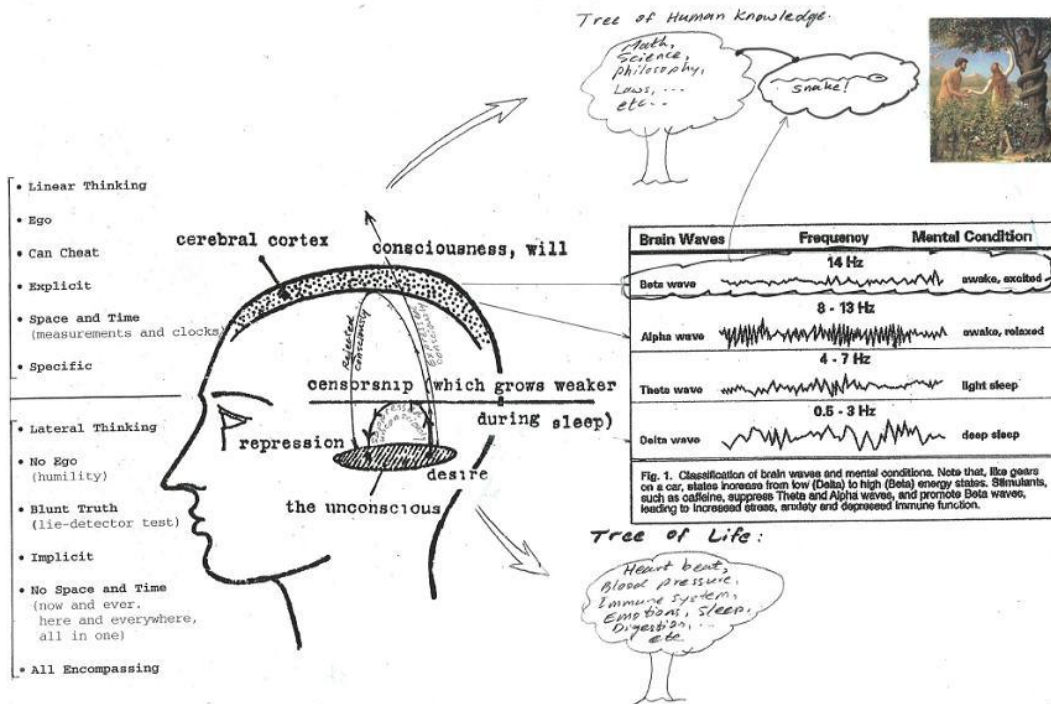 Tree of Human Knowledge.
Math,
Science,
Philosophy,
Laws, ...
etc...
snake!
• Linear Thinking
• Ego
• Can Cheat
• Explicit
• Space and Time
(measurements and clocks)
• Specific
• Lateral Thinking
• No Ego
(humility)
• Blunt Truth
(lie-detector test)
• Implicit
• No Space and Time
(now and ever.
here and everywhere,
all in one)
• All Encompassing
cerebral cortex
consciousness, will
Rejected
consciously
censorship (which grows weaker
during sleep)
repression
desire
the unconscious
Brain Waves Frequency Mental Condition
14 Hz
Beta wave awake, excited
8 - 13 Hz
Alpha wave awake, relaxed
4 - 7 Hz
Theta wave light sleep
0.5 - 3 Hz
Delta wave deep sleep
Fig. 1. Classification of brain waves and mental conditions. Note that, like gears
on a car, states increase from low (Delta) to high (Beta) energy states. Stimulants,
such as caffeine, suppress Theta and Alpha waves, and promote Beta waves,
leading to increased stress, anxiety and depressed immune function.
Tree of Life:
Heart beat,
Blood pressure,
Immune system,
Emotions, Sleep,
Digestion, ...
etc